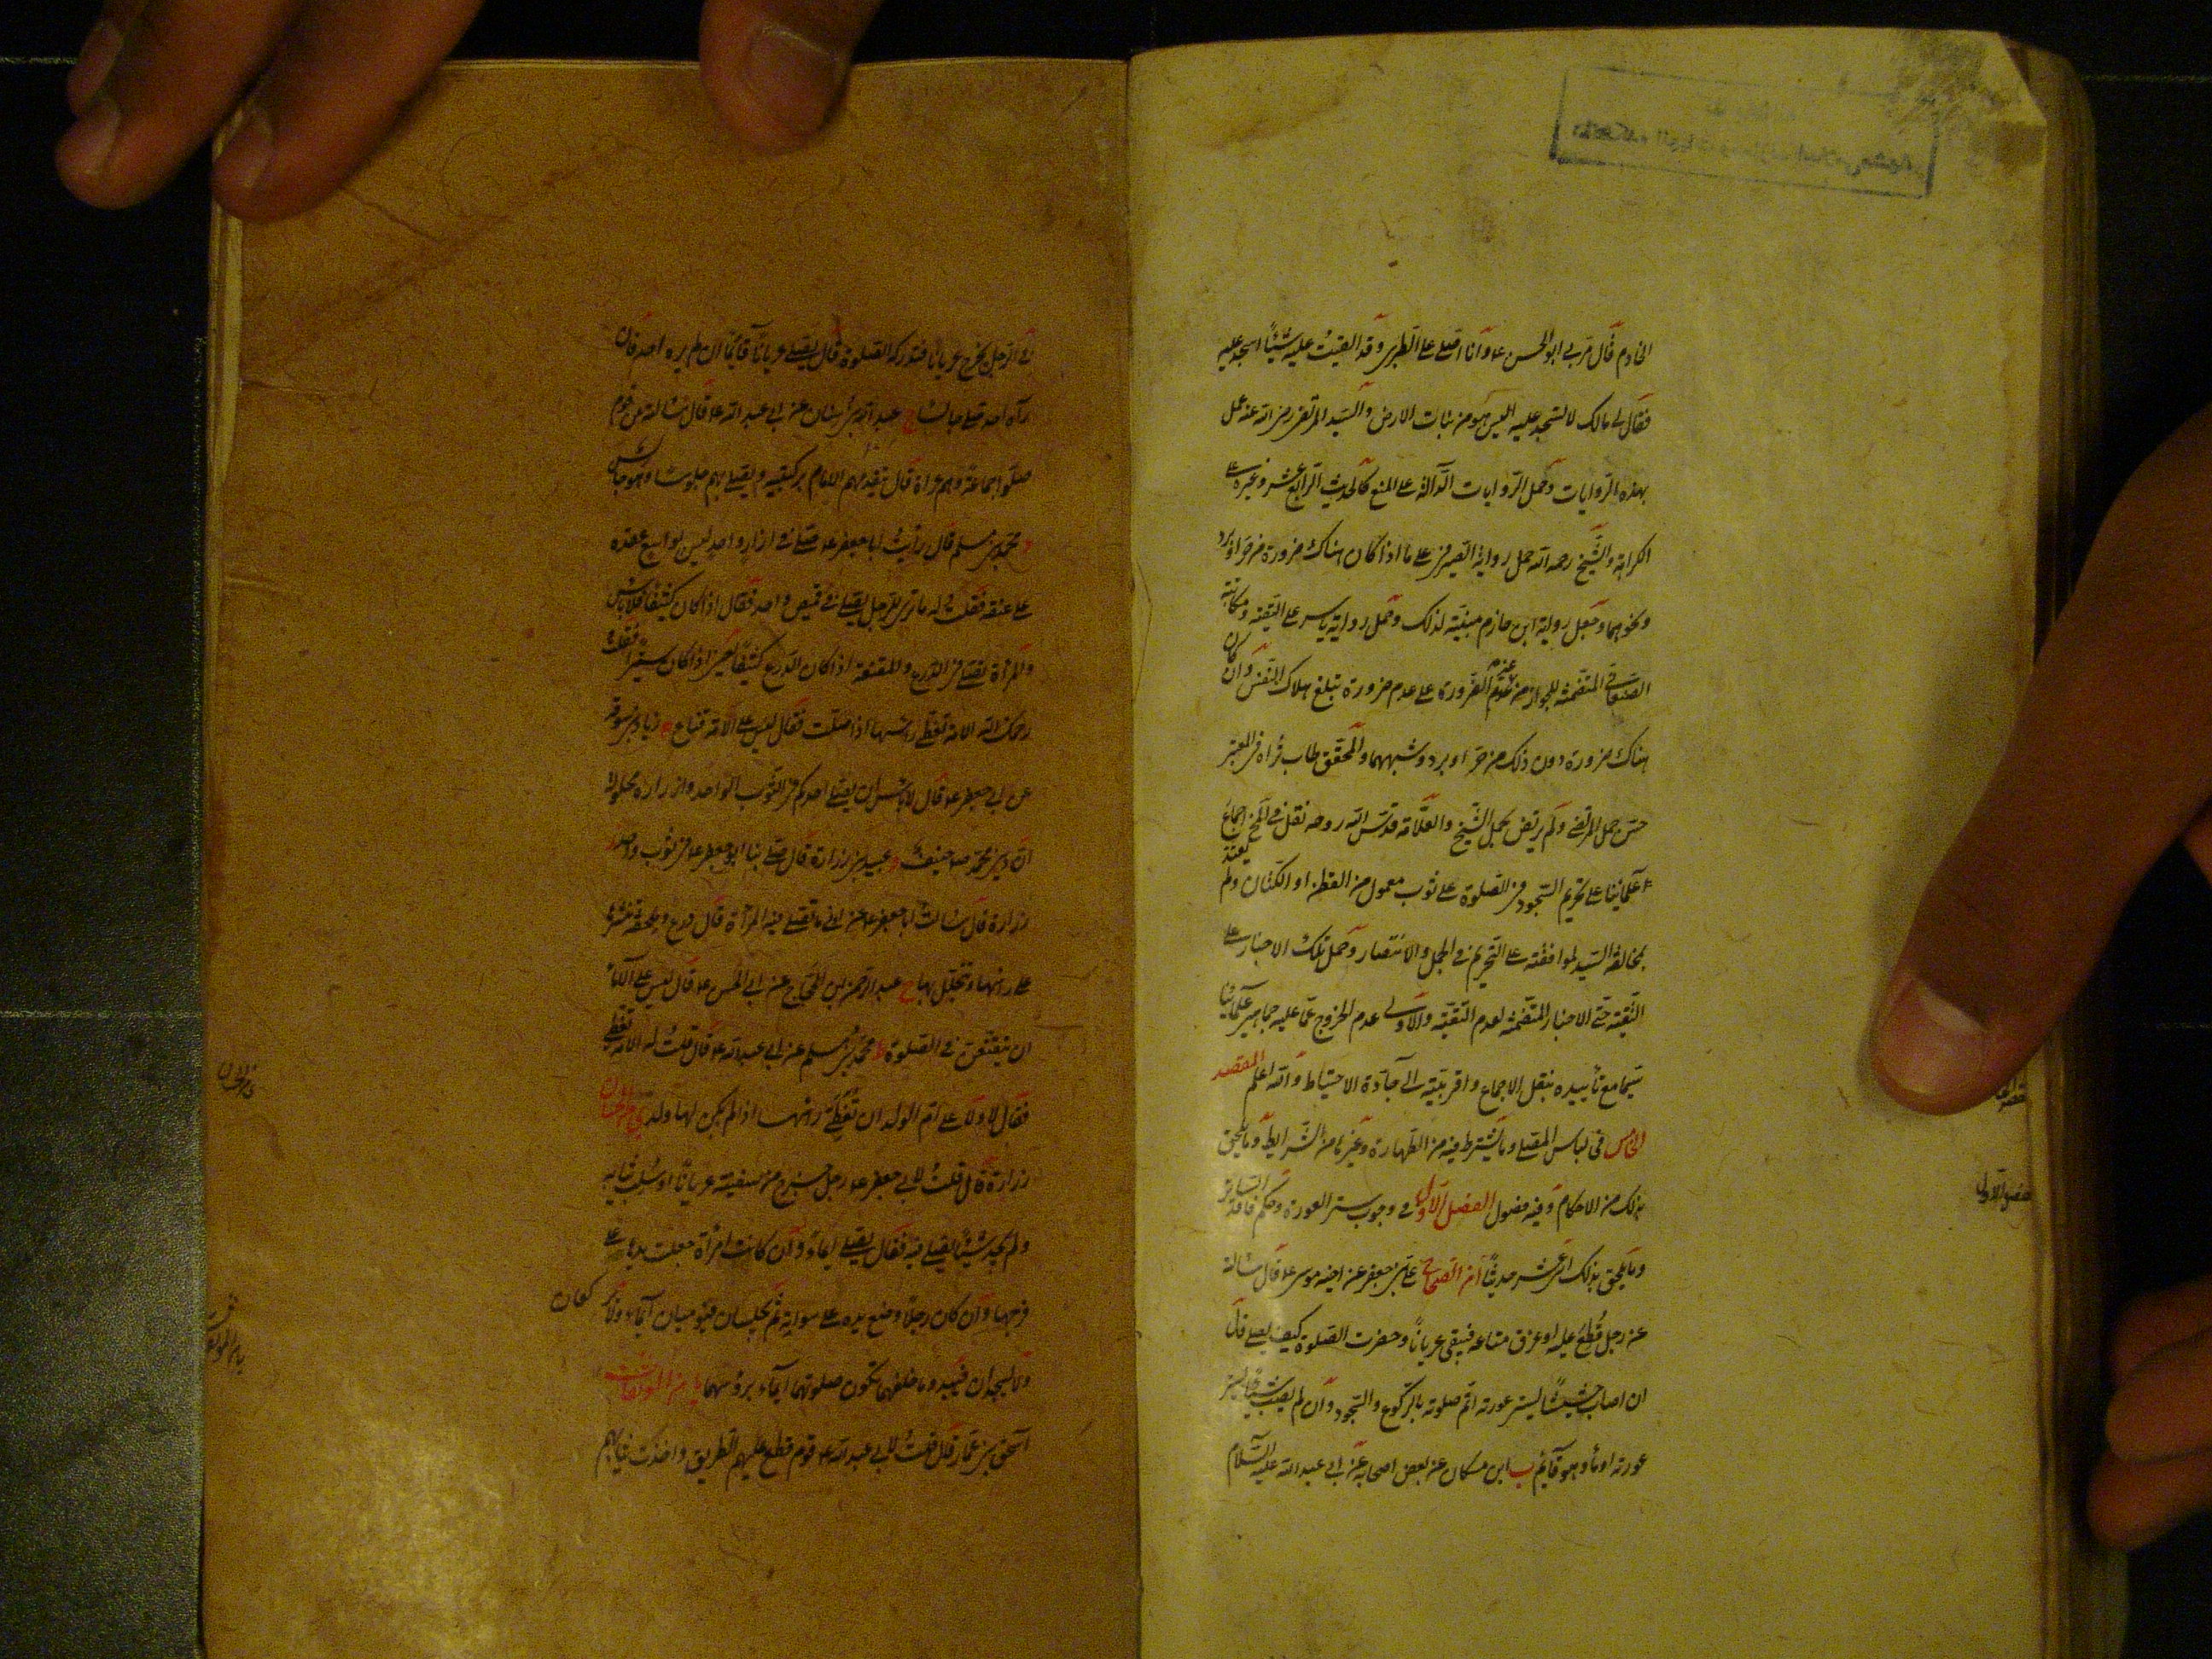 الخادم قال مر بي ابو الحسن ع وانا اصلي على الطبري وقد القيت عليه شيئا اسجد عليه
فقال لي مالك لا تسجد عليه اليس هو من نبات الارض والسيد المرتضى رضي الله عنه عمل
بهذه الروايات وحمل الروايات الدالة على المنع كالحديث الرابع عشر وغيره على
الكراهة والشيخ رحمه الله حمل رواية الصيرفي على ما اذا كان هناك ضرورة من حر او برد
ونحوهما وجعل رواية ابن حازم مبنية لذلك وحمل رواية ياسر على التقية ومكاتبة
الصنعاني المتضمنة للجواز من غير ضرورة على عدم ضرورة تبلغ هلاك النفس وان كان
هناك ضرورة دون ذلك من حر او برد وشبههما والمحقق طاب ثراه في المعتبر
حسن حمل المرتضى ولم يرتض بحمل الشيخ والعلامة قدس الله روحه نقل في اجماع
علمائنا على تحريم السجود في الصلوة على ثوب معمول من القطن او الكتان ولم يعتد
بمخالفة السيد لموافقته على التحريم في الجمل والانتصار وحمل تلك الاخبار على
التقية حتى الاخبار المتضمنة لعدم التقية والاولى عدم الخروج عما عليه جماهير علمائنا
سيما مع تأييده بنقل الاجماع واقربيته الى جادة الاحتياط والله اعلم المقصد
الخامس في لباس المصلي وما يشترط فيه من الطهارة وغيرها من الشرايط وما يلحق
بذلك من الاحكام وفيه فصول الفصل الاول في وجوب ستر العورة وحكم فاقد الساتر
وما يلحق بذلك اثنى عشر حديثا ا من الصحاح علي بن جعفر عن اخيه موسى ع قال سالته
عن رجل قطع عليه او غرق متاعه فيبقى عريانا وحضرت الصلوة كيف يصلي قال
ان اصاب حشيشا يستر عورته اتم صلوته بالركوع والسجود وان لم يصب شيئا يستر
عورته اومأ وهو قائم ب ابن مسكان عن بعض اصحابه عن ابي عبد الله عليه السلام
الفصل الاول
في الرجل يخرج عريانا فتدركه الصلوة قال يصلي عريانا قائما ان لم يره احد فان
رآه احد صلى جالسا ج عبد الله بن سنان عن ابي عبد الله ع قال سالته عن قوم
صلوا جماعة وهم عراة قال يتقدمهم الامام بركبتيه ويصلي بهم جلوسا وهو جالس
د محمد بن مسلم قال رأيت ابا جعفر ع صلى في ازار واحد ليس بواسع عقده
على عنقه فقلت له ما ترى للرجل يصلي في قميص واحد فقال اذا كان كثيفا فلا باس
والمرأة تصلي في الدرع والمقنعة اذا كان الدرع كثيفا يعني اذا كان ستيرا فقلت
رحمك الله الامة تغطي راسها اذا صلت فقال ليس على الامة قناع ه زياد بن سوقة
عن ابي جعفر ع قال لا باس ان يصلي احدكم في الثوب الواحد وازراره محلولة
ان دين محمد ص حنيف و عبيد بن زرارة قال صلى بنا ابو جعفر ع في ثوب واحد
زرارة قال سالت ابا جعفر ع عن ادنى ما تصلي فيه المرأة قال درع وملحفة تنشرها
على راسها وتجلل بها ح عبد الرحمن بن الحجاج عن ابي الحسن ع قال ليس على الاماء
ان يتقنعن في الصلوة ط محمد بن مسلم عن ابي عبد الله ع قال قلت له الامة تغطي
فقال لا ولا على ام الولد ان تغطي راسها اذا لم يكن لها ولد ي من الحسان
زرارة قال قلت لابي جعفر ع رجل خرج من سفينة عريانا او سلب ثيابه
ولم يجد شيئا يصلي فيه فقال يصلي ايماء وان كانت امرأة جعلت يدها على
فرجها وان كان رجلا وضع يده على سواته ثم يجلسان فيوميان ايماء ولا
ولا يسجدان فيبدو ما خلفهما تكون صلوتهما ايماء برؤسهما يا من الموثقات
اسحق بن عمار قال قلت لابي عبد الله ع قوم قطع عليهم الطريق واخذت ثيابهم
من الحسان